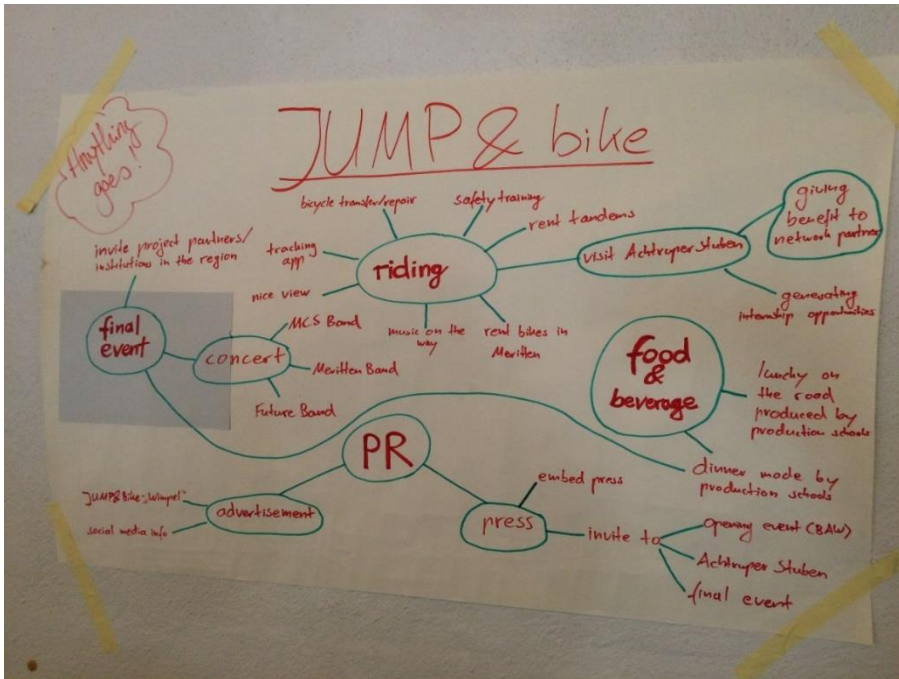 Anything
goes!
JUMP & bike
bicycle transfer/repair
safety training
rent tandems
tracking
app
riding
nice view
music on the
way
rent bikes in
Meritten
visit Achtruper Stuben
giving
benefit to
network partner
generating
internship opportunities
invite project partners/
institutions in the region
final
event
concert
MCS Band
Meritten Band
Future Band
food
&
beverage
lunchy on
the road
produced by
production schools
dinner made by
production schools
PR
advertisement
JUMP&Bike-„Wimpel"
social media info
press
embed press
invite to
opening event (BAW)
Achtruper Stuben
final event